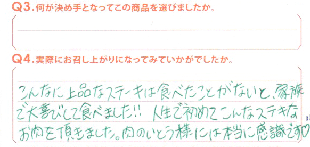 Q3.何が決め手となってこの商品を選びましたか。
Q4.実際にお召し上がりになってみていかがでしたか。
こんなに上品なステーキは食べたことがないと、家族
で大喜びして食べました!! 人生で初めてこんなステキな
お肉を頂きました。肉のいとう様には本当に感謝です♡